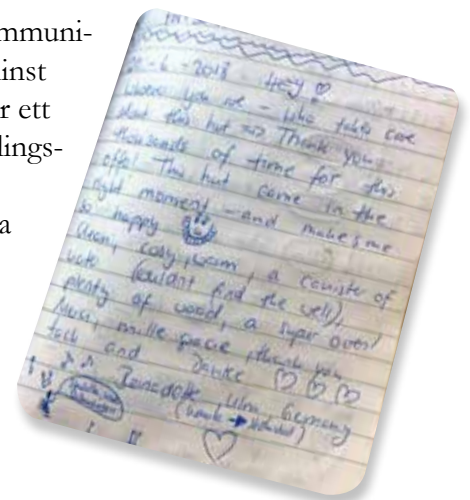 mmuni-
inst
r ett
lings-
a
- 2018 Hey ♡
you are - who takes care
about this hut => Thank you
thousands of time for this
offer! This hut came in the
right moment - and makes me
so happy
clean, cosy, warm, a canister of
(couldnt find the well),
plenty of wood, a super oven!
mille grazie, thank you
tack and Danke ♡ ♡ ♡
Ulm, Germany
♡